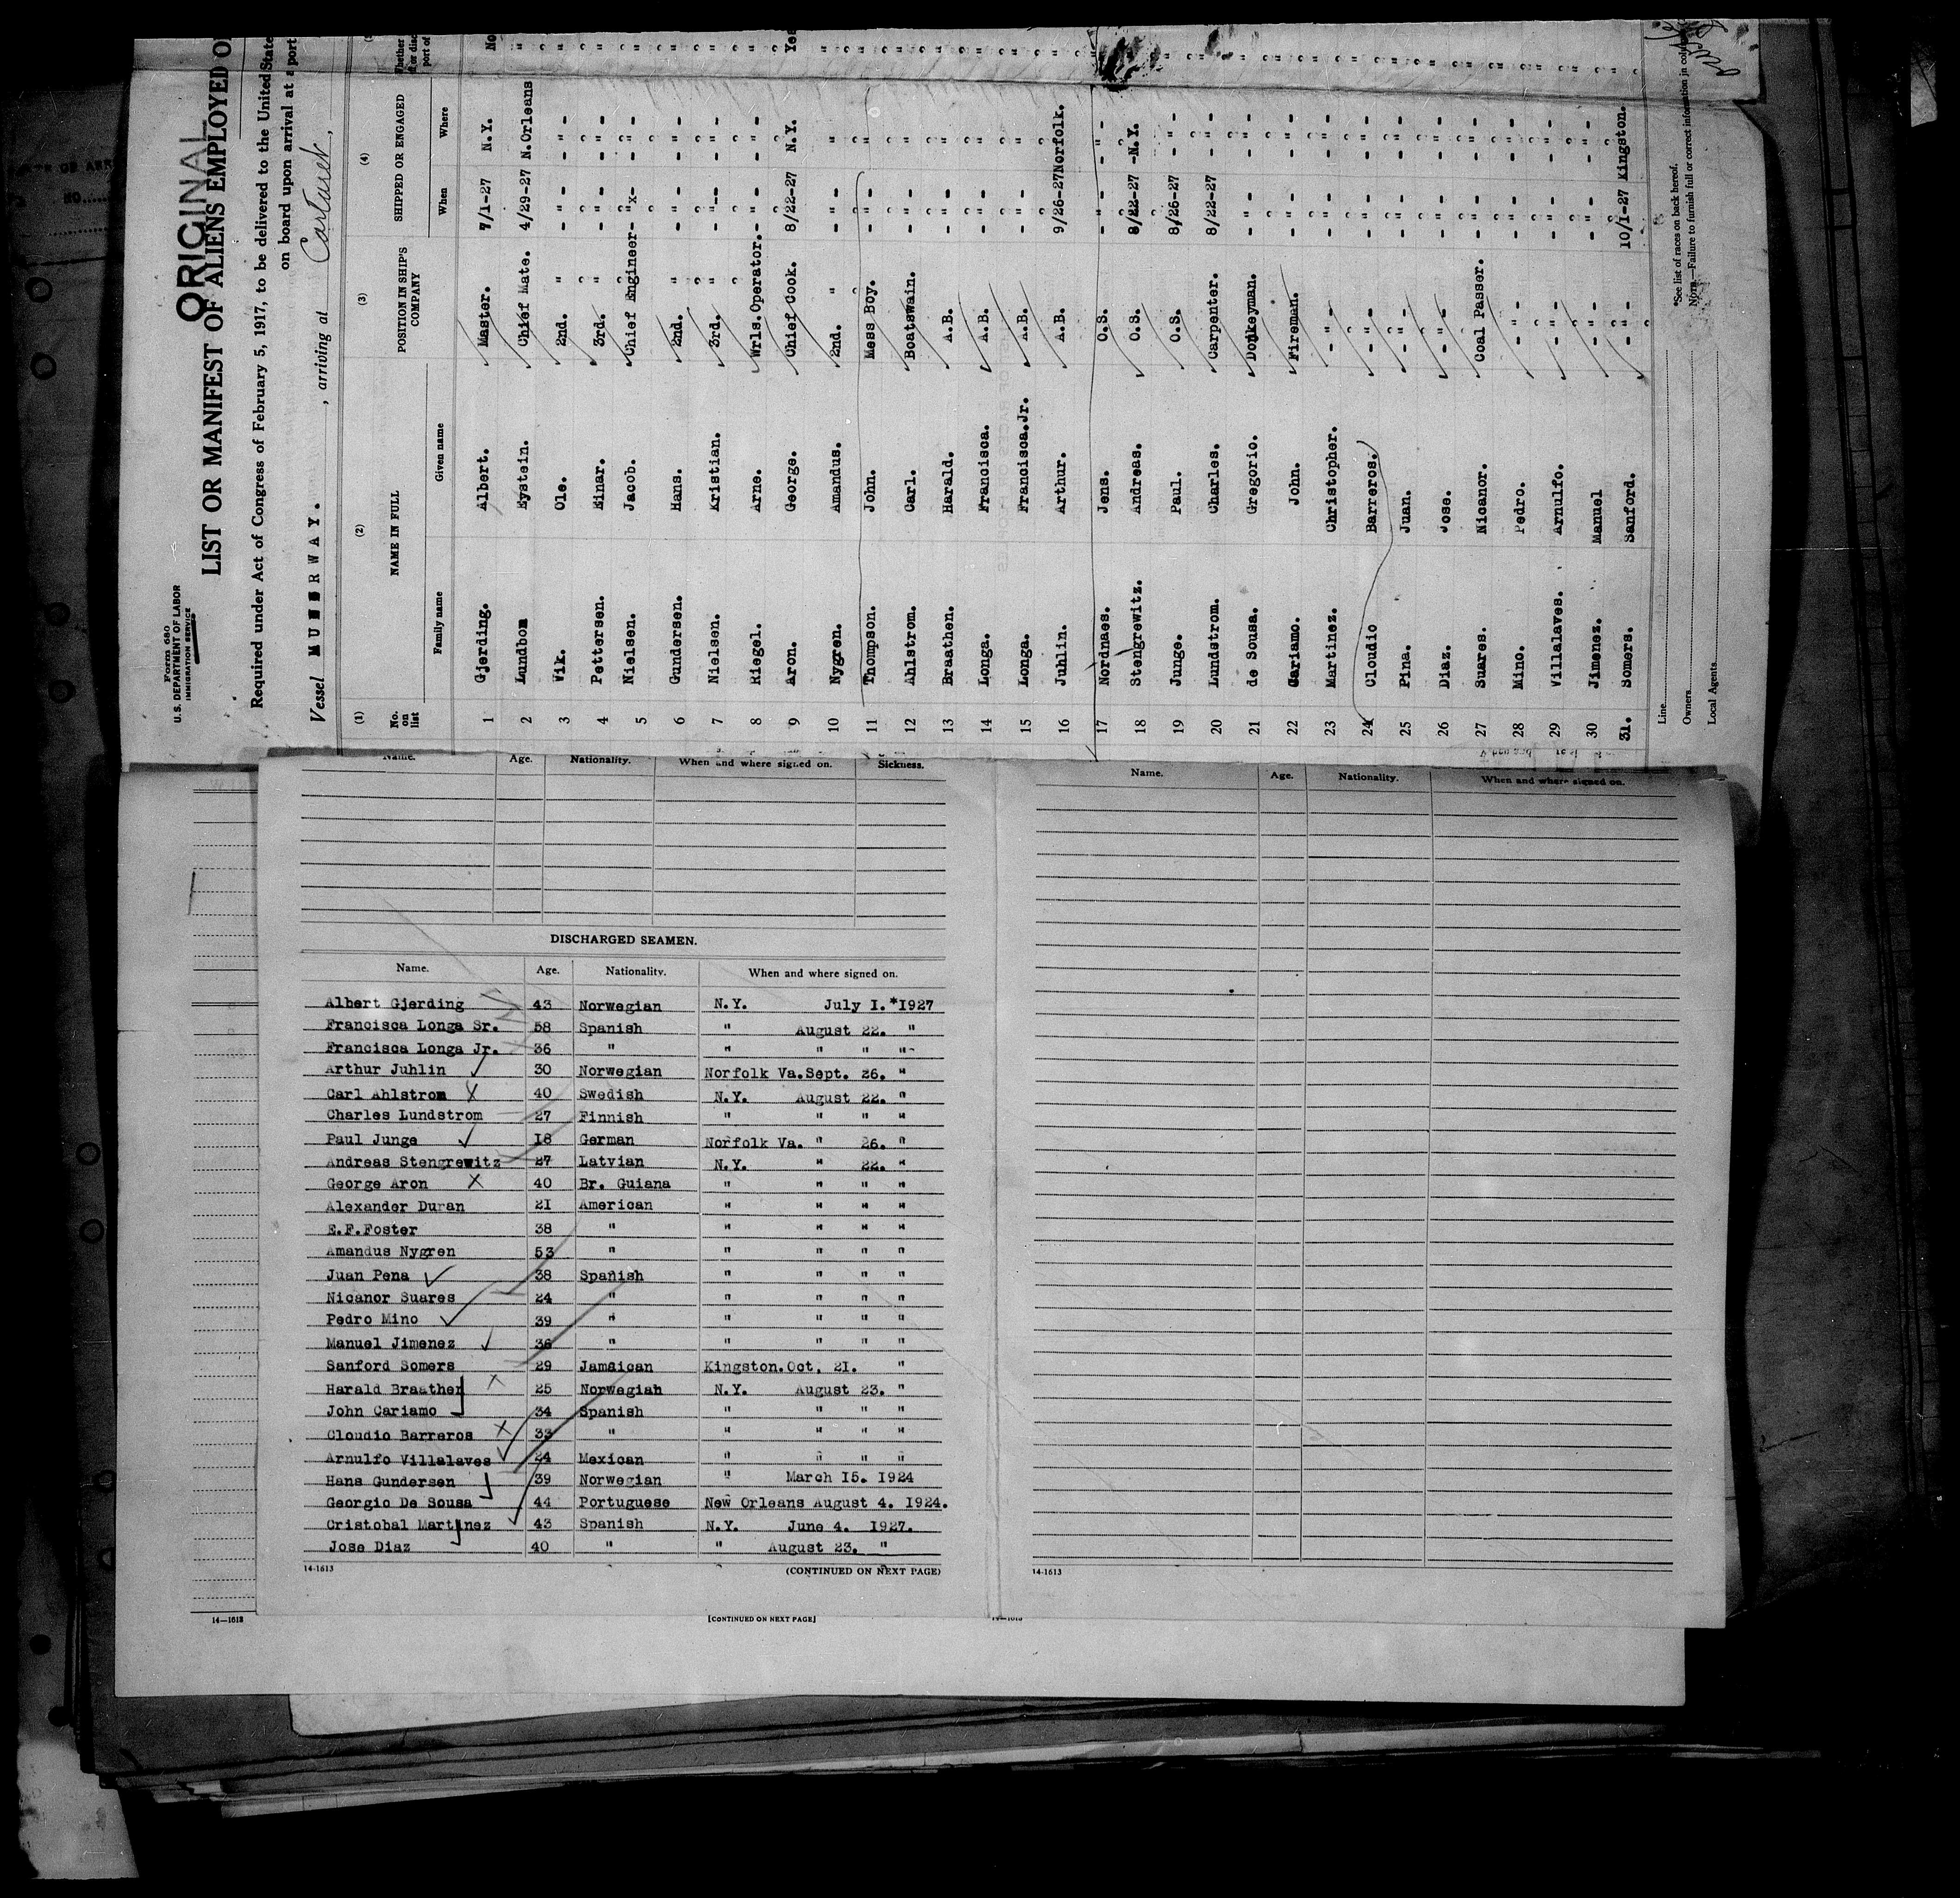 Form 680
U.S. DEPARTMENT OF LABOR
IMMIGRATION SERVICE
ORIGINAL
LIST OR MANIFEST OF ALIENS EMPLOYED O
Required under Act of Congress of February 5, 1917, to be delivered to the United State
on board upon arrival at a port
Vessel MUNORWAY. , arriving at Carteret,
(1) (2) (3) (4)
No. on list NAME IN FULL POSITION IN SHIP'S COMPANY SHIPPED OR ENGAGED Whether port of
Family name Given name When Where
1 Gjerding. Albert. Master. 7/1-27 N.Y. No
2 Lundbom Eystein. Chief Mate. 4/29-27 N.Orleans "
3 Vik. Ole. 2nd. " - " - - " - "
4 Pettersen. Einar. 3rd. " - " - - " - "
5 Nielsen. Jacob. Chief Engineer - "x- - " - "
6 Gundersen. Hans. 2nd. " - " - - " - "
7 Nielsen. Kristian. 3rd. " - "-- - " - "
8 Riegel. Arne. Wrls.Operator. - " - - " - "
9 Aron. George. Chief Cook. 8/22-27 N.Y. Yes
10 Nygren. Amandus. 2nd. " - " - " "
11 Thompson. John. Mess Boy. - " - " "
12 Ahlstrom. Carl. Boatswain. - " - " "
13 Braathen. Harald. A.B. - " - " "
14 Longa. Francisca. A.B. - " - " "
15 Longa. Francisca.Jr. A.B. - " - " "
16 Juhlin. Arthur. A.B. 9/26-27 Norfolk. "
17 Nordnaes. Jens. O.S. - " - - " - "
18 Stengrewitz. Andreas. O.S. 8/22-27 -N.Y. "
19 Junge. Paul. O.S. 8/26-27 - " - "
20 Lundstrom. Charles. Carpenter. 8/22-27 - " - "
21 de Sousa. Gregorio. Donkeyman. - " - - " - "
22 Cariamo. John. Fireman. - " - - " - "
23 Martinez. Christopher. - " - - " - - " - "
24 Cloudio Barreros. - " - - " - - " - "
25 Pina. Juan. - " - - " - - " - "
26 Diaz. Jose. - " - - " - - " - "
27 Suares. Nicanor. Coal Passer. - " - - " - "
28 Mino. Pedro. - " - - " - - " - "
29 Villalaves. Arnulfo. - " - - " - - " - "
30 Jimenez. Manuel - " - - " - - " - "
31. Somers. Sanford. - " - 10/1-27 Kingston. "
Line
Owners
Local Agents
*See list of races on back hereof.
NOTE.—Failure to furnish full or correct information in colu
Name. Age. Nationality. When and where signed on. Sickness.
DISCHARGED SEAMEN.
Name. Age. Nationality. When and where signed on.
Albert Gjerding 43 Norwegian N.Y. July I.*1927
Francisca Longa Sr. 58 Spanish " August 22. "
Francisca Longa Jr. 36 " " " " "
Arthur Juhlin 30 Norwegian Norfolk Va.Sept. 26. "
Carl Ahlstrom 40 Swedish N.Y. August 22. "
Charles Lundstrom 27 Finnish " " " "
Paul Junge I8 German Norfolk Va. " 26. "
Andreas Stengrewitz 27 Latvian N.Y. " 22. "
George Aron 40 Br. Guiana " " " "
Alexander Duran 2I American " " " "
E.F.Foster 38 " " " " "
Amandus Nygren 53 " " " " "
Juan Pena 38 Spanish " " " "
Nicanor Suares 24 " " " " "
Pedro Mino 39 " " " " "
Manuel Jimenez 36 " " " " "
Sanford Somers 29 Jamaican Kingston.Oct. 2I. "
Harald Braathen 25 Norwegian N.Y. August 23. "
John Cariamo 34 Spanish " " " "
Cloudio Barreros 33 " " " " "
Arnulfo Villalaves 24 Mexican " " " "
Hans Gundersen 39 Norwegian " March I5. I924
Georgio De Sousa 44 Portuguese New Orleans August 4. I924.
Cristobal Martinez 43 Spanish N.Y. June 4. I927.
Jose Diaz 40 " " August 23. "
14-1613 (CONTINUED ON NEXT PAGE)
Name. Age. Nationality. When and where signed on.
14-1613
14—1613 [CONTINUED ON NEXT PAGE] 14—1613